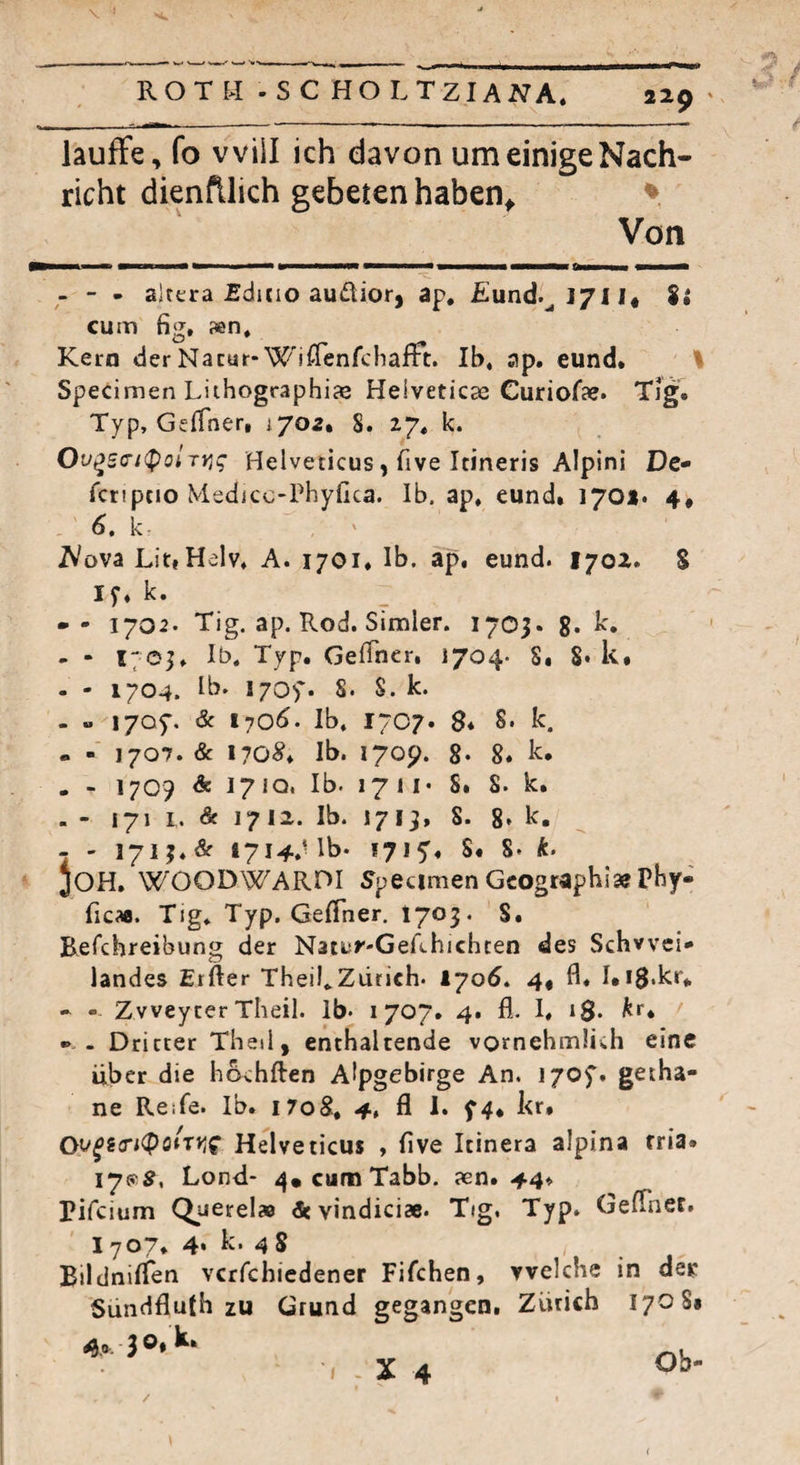 ROTH-SCHOLTZIANA. 229
lauffe, ſo vvill ich davon um einige Nach-
richt dienſtlich gebeten haben,
Von
- - - altera Editio auctior, ap. Eund. 1711. 8.
cum fig. æn.
Kern der Natur-Wiſſenſchafft. Ib. ap. eund.
Specimen Lithographiæ Helveticæ Curioſæ. Tig.
Typ. Geſſner. 1702. 8. 27. k.
Ουρεσιφοίτης Helveticus, ſive Itineris Alpini De-
ſcriptio Medico-Phyſica. Ib. ap. eund. 1702. 4.
6. k.
Nova Lit. Helv. A. 1701. Ib. ap. eund. 1702. 8
15. k.
- - 1702. Tig. ap. Rod. Simler. 1703. 8. k.
- - 1703. Ib. Typ. Geſſner. 1704. 8. 8. k.
- - 1704. Ib. 1705. 8. 8. k.
- - 1705. & 1706. Ib. 1707. 8. 8. k.
- - 1707. & 1708. Ib. 1709. 8. 8. k.
- - 1709 & 1710. Ib. 1711. 8. 8. k.
- - 1711. & 1712. Ib. 1713, 8. 8. k.
- - 1713. & 1714. Ib. 1715. 8. 8. k.
JOH. WOODWARDI Specimen Geographiæ Phy-
ſicæ. Tig. Typ. Geſſner. 1703. 8.
Beſchreibung der Natur-Geſchichten des Schvvei-
landes Erſter Theil. Zürich. 1706. 4. fl. I. 18. kr.
- - Zvveyter Theil. Ib. 1707. 4. fl. I. 18. kr.
- - Dritter Theil, enthaltende vornehmlich eine
über die höchſten Alpgebirge An. 1705. getha-
ne Reiſe. Ib. 1708. 4. fl I. 54. kr.
Ουρεσιφοίτης Helveticus, ſive Itinera alpina tria.
1708. Lond- 4. cum Tabb. æn. 44.
Piſcium Querelæ & vindiciæ. Tig. Typ. Geſſner.
1707. 4. k. 48
Bildniſſen verſchiedener Fiſchen, vvelche in der
Sündfluth zu Grund gegangen. Zürich 1708.
4. 30. k.
X 4 Ob-